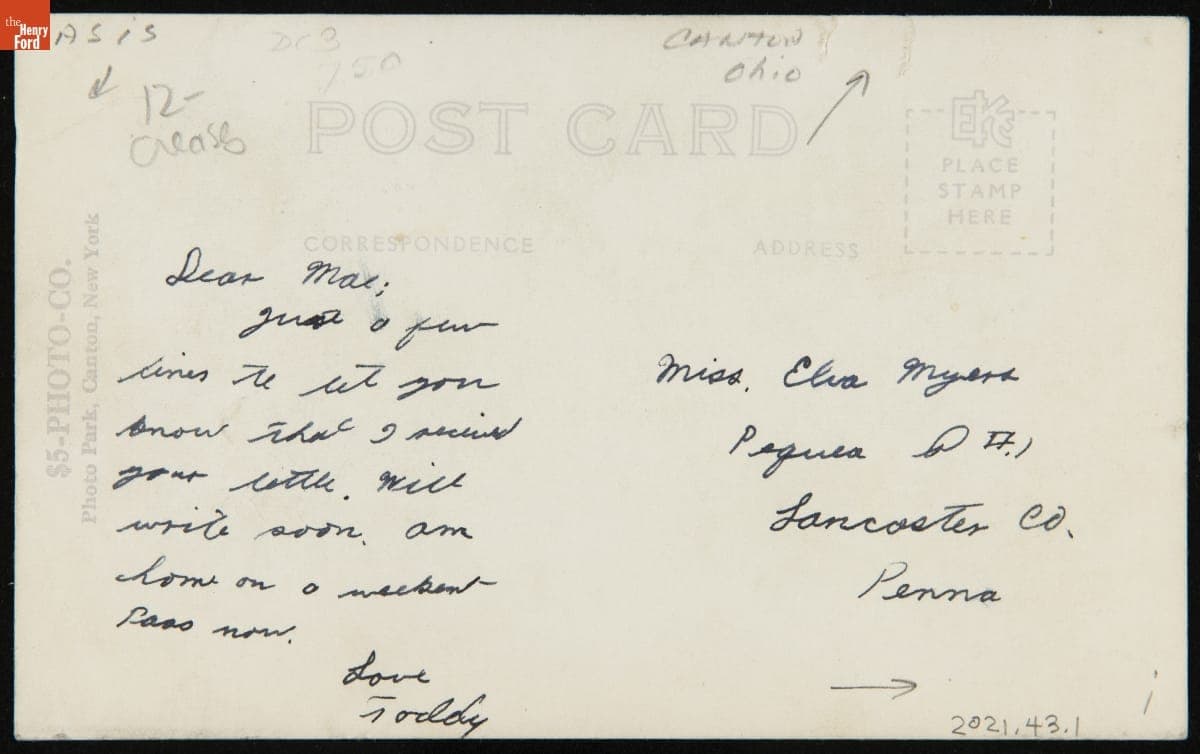 the Henry Ford
AS is
12-
crease
DC3
750
CANTON
Ohio
POST CARD
EKC
PLACE
STAMP
HERE
CORRESPONDENCE
ADDRESS
$5-PHOTO-CO.
Photo Park, Canton, New York
Dear Mae;
Just a few
lines to let you
know that I received
your lette. Will
write soon. Am
home on a weekent
Pass now.
Love
Toddy
Miss. Elva Myers
Pequea #1
Lancaster CO.
Penna
2021.43.1